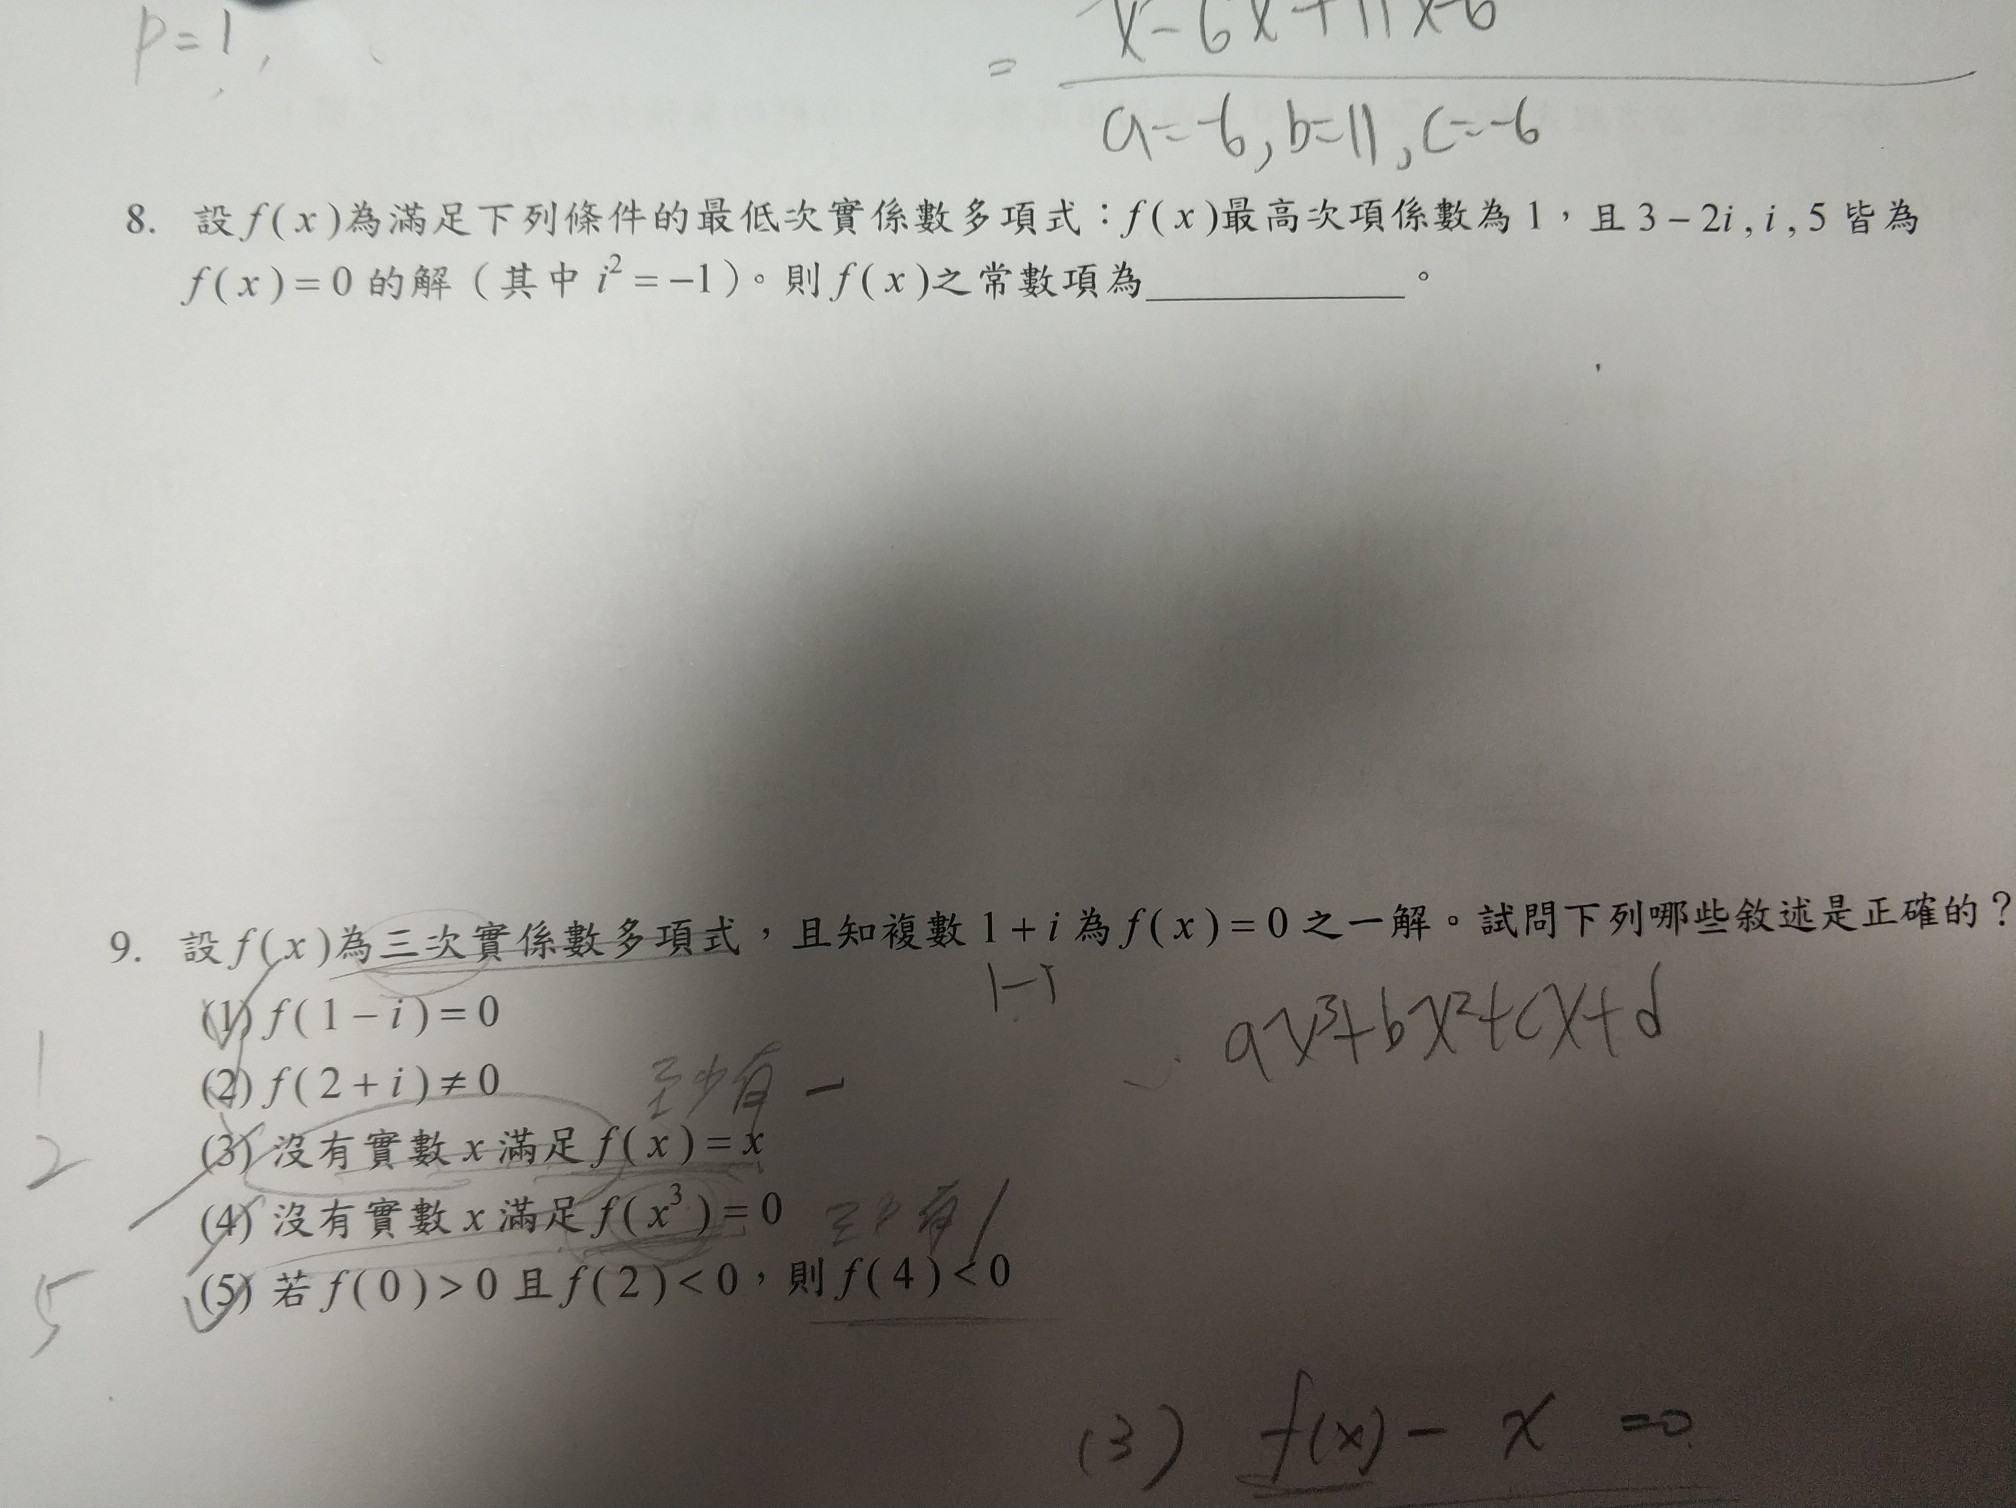 p=1,
x-6x+11x-6
=
a=-6, b=11, c=-6
8. 設 f(x)為滿足下列條件的最低次實係數多項式：f(x)最高次項係數為 1，且 3-2i, i, 5 皆為
f(x)=0 的解（其中 i²=-1）。則 f(x)之常數項為____________。
9. 設 f(x)為三次實係數多項式，且知複數 1+i 為 f(x)=0 之一解。試問下列哪些敘述是正確的？
1-i
(1) f(1-i)=0
ax³+bx²+cx+d
1
(2) f(2+i)≠0
至少有一
2
(3) 沒有實數 x 滿足 f(x)=x
(4) 沒有實數 x 滿足 f(x³)=0
至少有1
5
(5) 若 f(0)>0 且 f(2)<0，則 f(4)<0
(3) f(x)-x=0